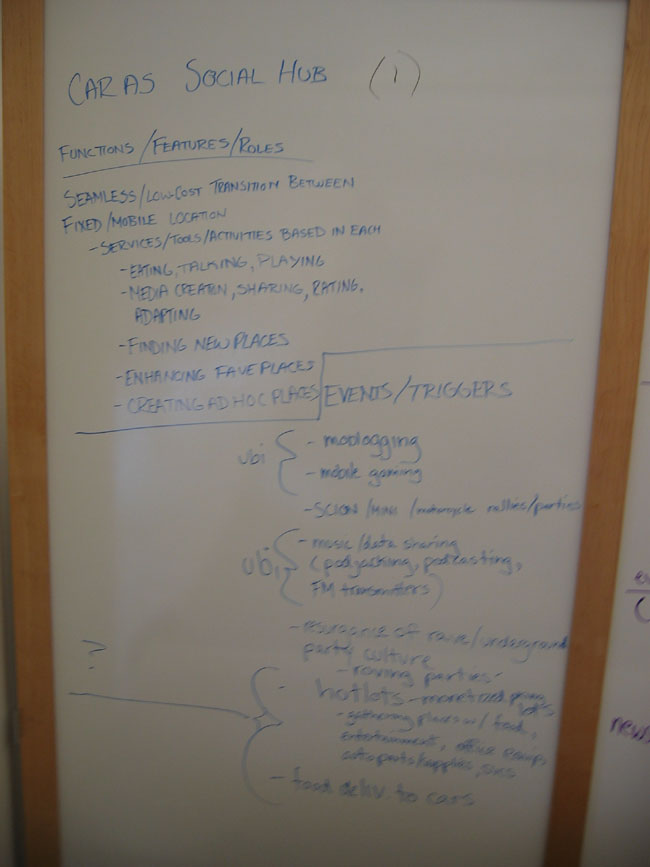 CAR AS SOCIAL HUB (1)
FUNCTIONS/FEATURES/ROLES
SEAMLESS/LOW-COST TRANSITION BETWEEN
FIXED/MOBILE LOCATION
- SERVICES/TOOLS/ACTIVITIES BASED IN EACH
- EATING, TALKING, PLAYING
- MEDIA CREATION, SHARING, RATING,
ADAPTING
- FINDING NEW PLACES
- ENHANCING FAVE PLACES
- CREATING AD HOC PLACES
EVENTS/TRIGGERS
ubi
- moblogging
- mobile gaming
- SCION/MINI/motorcycle rallies/parties
ubi
- music/data sharing
(podjacking, podcasting,
FM transmitters)
- resurgance of rave/underground
party culture
- roving parties
?
hotlots - monetized lots
- gathering places w/ food,
entertainment, office equip,
auto parts/supplies, svcs
- food deliv. to cars
news